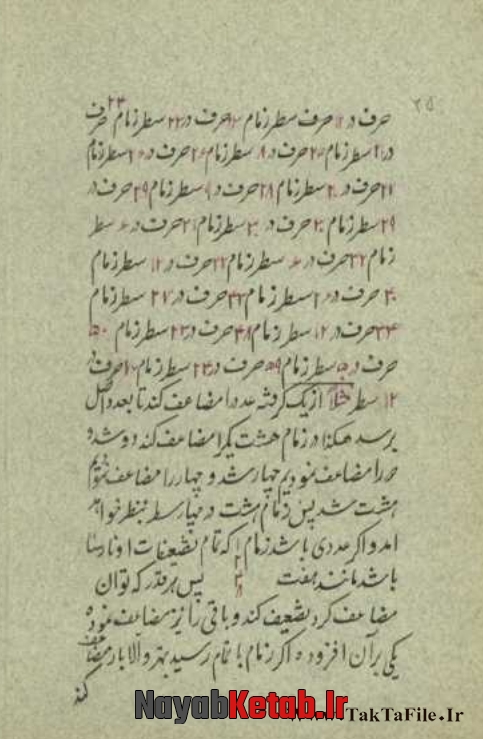 ۲۵
حرف در ۱۲ حرف سطر زمام حرف در ۲۲ سطر زمام ۲۴ حرف
در ۲۱ سطر زمام ۲۵ حرف در سطر زمام ۲۶ حرف در ۲۰ سطر زمام
۲۷ حرف در سطر زمام ۲۸ حرف در ۹ سطر زمام ۲۹ حرف در
۲۹ سطر زمام ۳۰ حرف در سطر زمام ۳۱ حرف در سطر
زمام ۳۲ حرف در سطر زمام ۳۳ حرف در ۱۲ سطر زمام
۴۰ حرف در سطر زمام ۴۲ حرف در ۲۷ سطر زمام
۴۴ حرف در ۱۲ سطر زمام ۴۸ حرف در ۲۳ سطر زمام ۵۰
حرف در سطر زمام ۵۹ حرف در ۲۳ سطر زمام حرف در
۱۲ سطر مثلا از یک گرفته عدد را مضاعف کند تا بعدد اصل
برسد هکذا در زمام هشت یکرا مضاعف کند دو شد و
دو را مضاعف نمودیم چهار شد و چهار را مضاعف نمودیم
هشت شد پس زمام هشت در چهار سطر بنظر خواهد
امد و اگر عددی باشد زمام که تمام تضعیفات او نارسا
باشد مانند هفت پس هر قدر که توان
مضاعف کرد تضعیف کند و باقی را نیز مضاعف نموده
یکی بر آن افزوده اگر زمام باتمام رسید بهتر والا بار مضاعف
کند
NayabKetab.Ir
www.TakTaFile.Ir